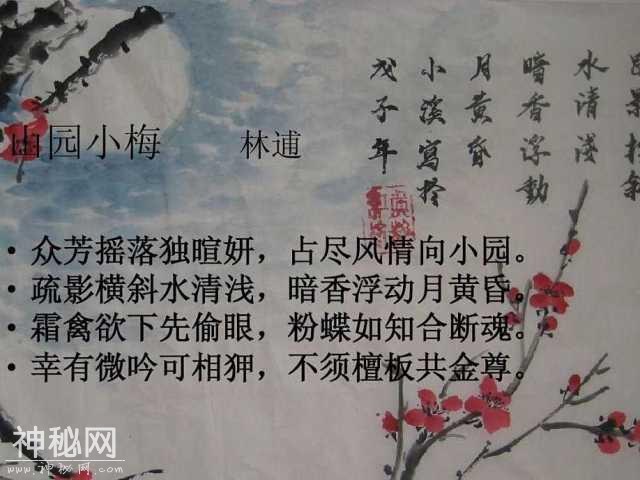 山园小梅 林逋
• 众芳摇落独暄妍，占尽风情向小园。
• 疏影横斜水清浅，暗香浮动月黄昏。
• 霜禽欲下先偷眼，粉蝶如知合断魂。
• 幸有微吟可相狎，不须檀板共金尊。
水清淺
暗香浮動
月黃昏
小溪寫於
戊子年
神秘网
www.神秘网.com